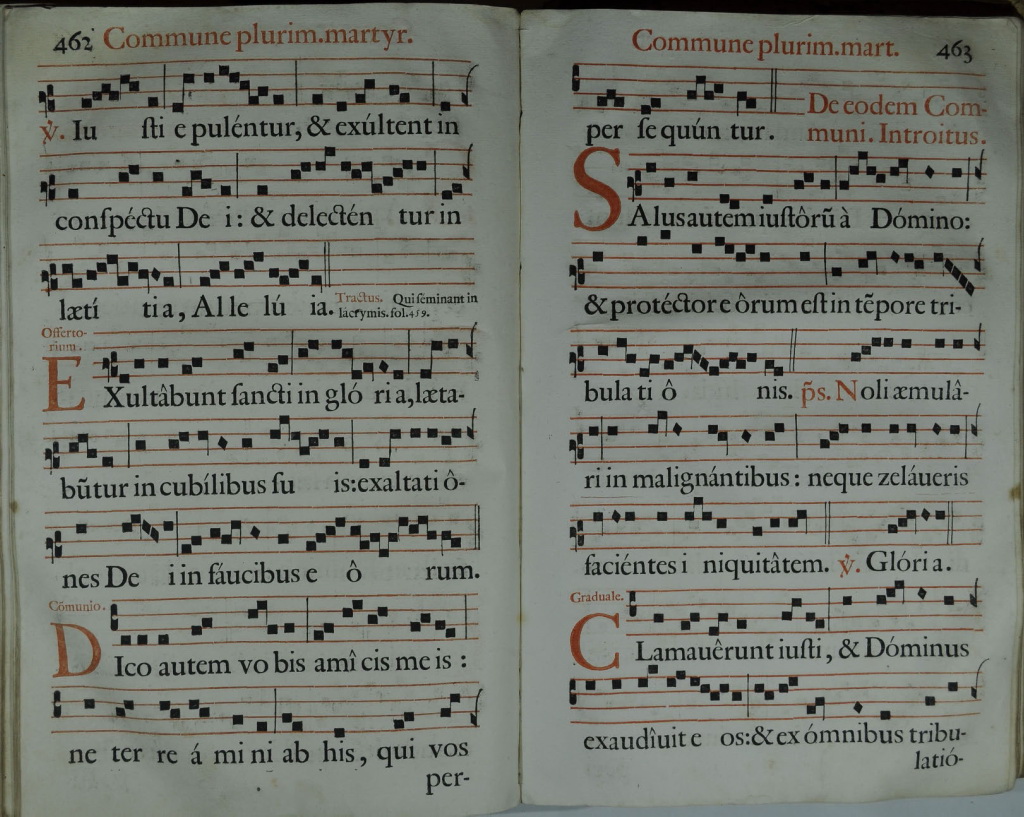 462 Commune plurim.martyr.
℣. Iu ſti e puléntur, & exúltent in
conſpéctu De i: & delectén tur in
lætí tia, Al le lú ia. Tractus. Qui ſéminant in
lácrymis. fol.459.
Offerto-
rium.
EXultâbunt ſancti in gló ri a, læta-
bũtur in cubílibus ſu is: exaltati ô-
nes De i in fáucibus e ô rum.
Cõmunio.
DIco autem vo bis amî cis me is :
ne ter re á mi ni ab his, qui vos
per-
Commune plurim.mart. 463
per ſe quún tur. De eodem Com-
muni. Introitus.
SAlus autem iuſtôrũ à Dómino:
& protéctor e ôrum eſt in tẽpore tri-
bula ti ô nis. p̃s. Noli æmulâ-
ri in malignántibus : neque zeláueris
faciéntes i niquitâtem. ℣. Glóri a.
Graduale.
CLamauêrunt iuſti, & Dóminus
exaudîuit e os: & ex ómnibus tribu-
latió-